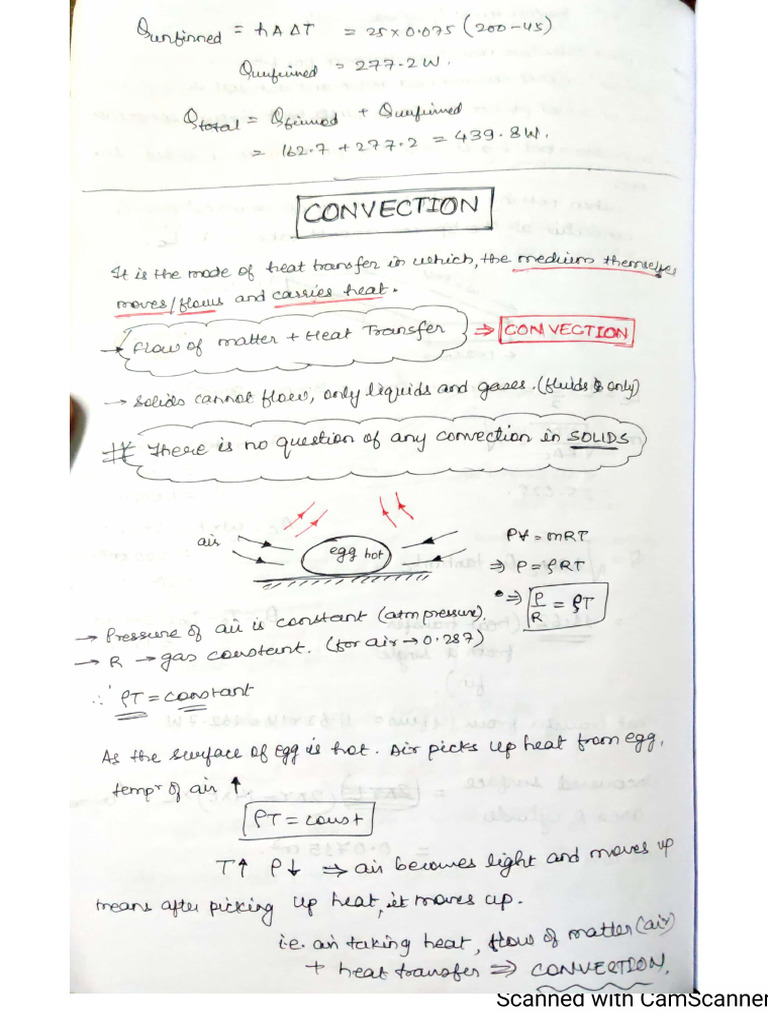 Qunfinned = hAΔT = 25×0.075 (200-45)
Qunfinned = 277.2W.
Qtotal = Qfinned + Qunfinned
= 162.7 + 277.2 = 439.8W.
CONVECTION
It is the mode of heat transfer in which, the medium themselves
moves/flows and carries heat.
→ flow of matter + Heat Transfer ⇒ CONVECTION
→ Solids cannot flow, only liquids and gases. (fluids only)
# There is no question of any convection in SOLIDS
air egg hot
PV = mRT
⇒ P = ρRT
⇒ P/R = ρT
→ Pressure of air is constant (atm pressure).
→ R → gas constant. (for air → 0.287)
∴ ρT = constant
As the surface of egg is hot. Air picks up heat from egg,
tempr of air ↑
ρT = const
T↑ ρ↓ ⇒ air becomes light and moves up
means after picking up heat, it moves up.
i.e. air taking heat, flow of matter (air)
+ heat transfer ⇒ CONVECTION.
Scanned with CamScanner